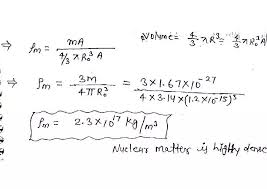 ⇒ ρm = mA / (4/3 π R₀³ A)
Volume = 4/3 π R³ = 4/3 π R₀³ A
⇒ ρm = 3m / (4πR₀³) = 3×1.67×10⁻²⁷ / (4×3.14×(1.2×10⁻¹⁵)³)
ρm = 2.3×10¹⁷ kg/m³
Nuclear matter is highly dense